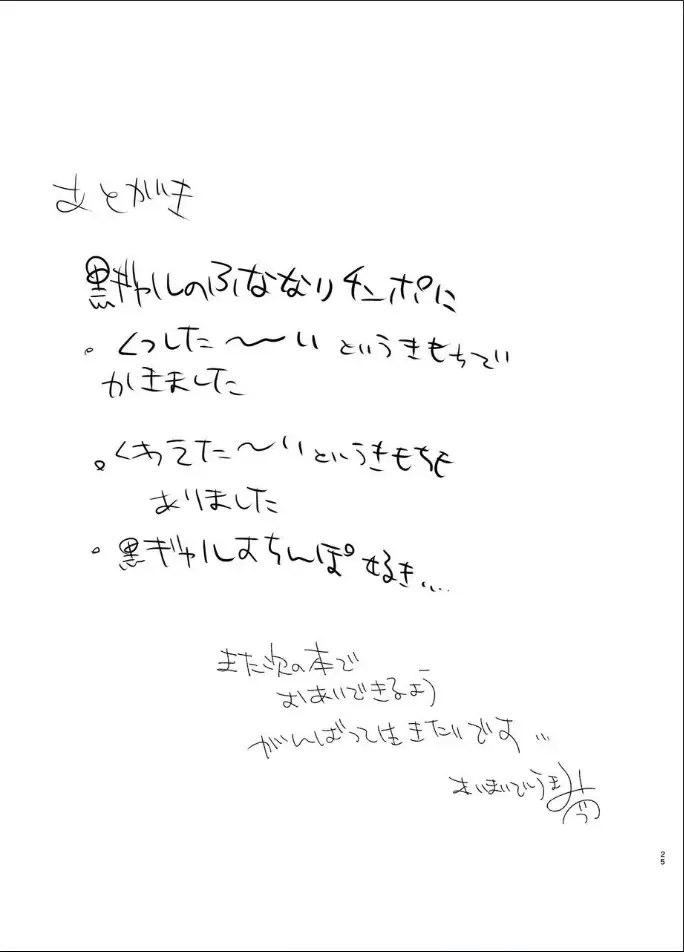 あとがき
黒ギャルのふたなりチンポに
・くっした〜いというきもちで
かきました
・くわえた〜いというきもちも
ありました
・黒ギャルおちんぽ好き…
また次の本で
おあいできるよう
がんばって生きたいです…
25